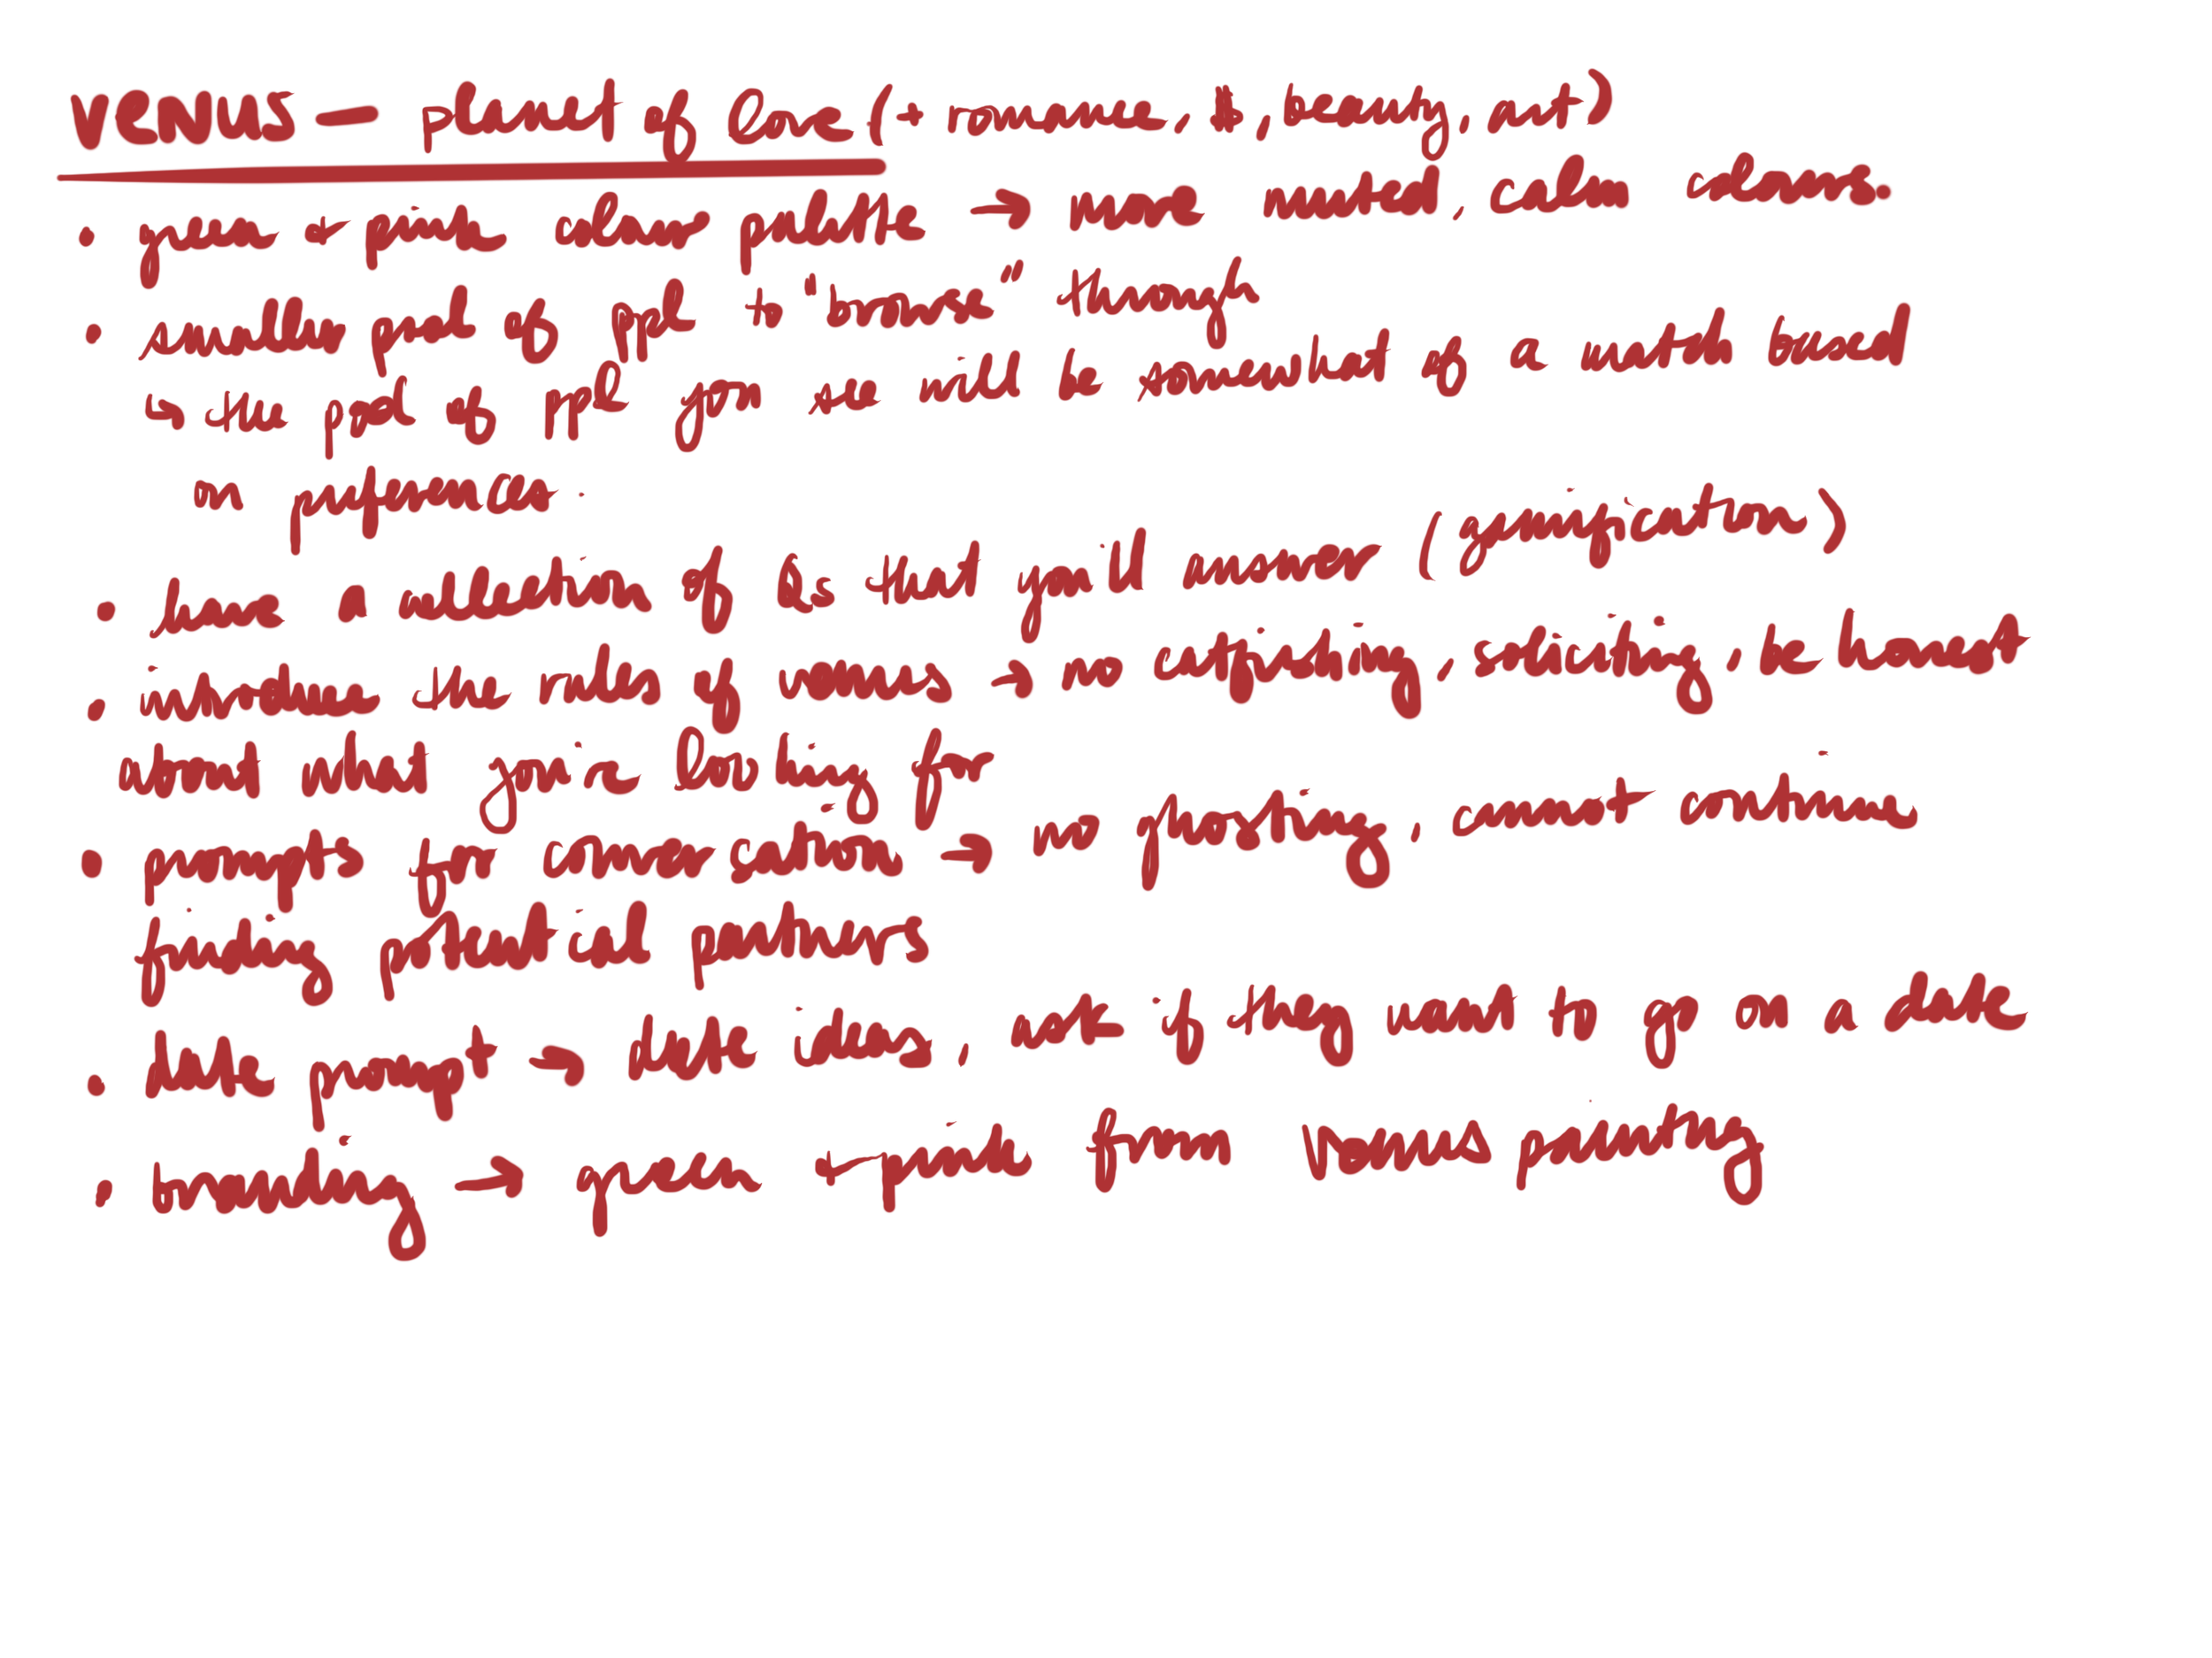 VENUS — planet of love (+ romance, $, beauty, art)
• green + pink colour palette → more muted, calm colours.
• smaller pool of ppl to "browse" through
↳ the pool of ppl you see will be somewhat of a match based
on preferences.
• have a collection of Qs that you'll answer (gamification)
• introduce the rules of venus → no catfishing, soliciting, be honest
about what you're looking for
• prompts for conversation → no ghosting, cannot continue
finding potential partners
• date prompt → date ideas, ask if they want to go on a date
• branding → green + pink from Venus painting